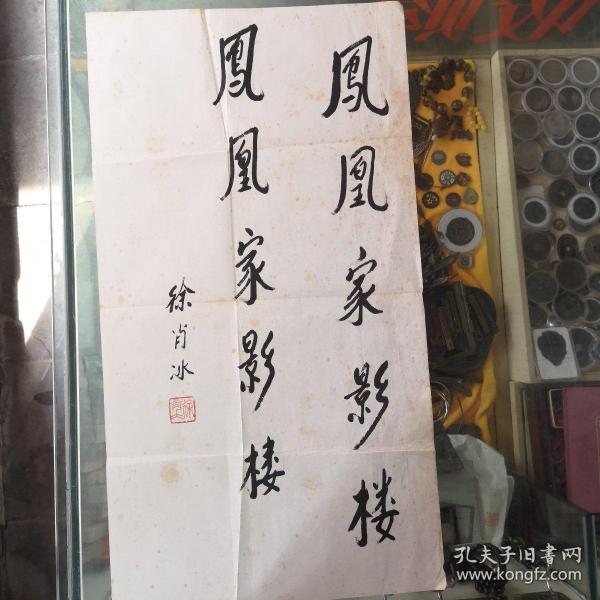 鳳凰家影楼
鳳凰家影楼
徐肖冰
孔夫子旧书网
www.kongfz.com